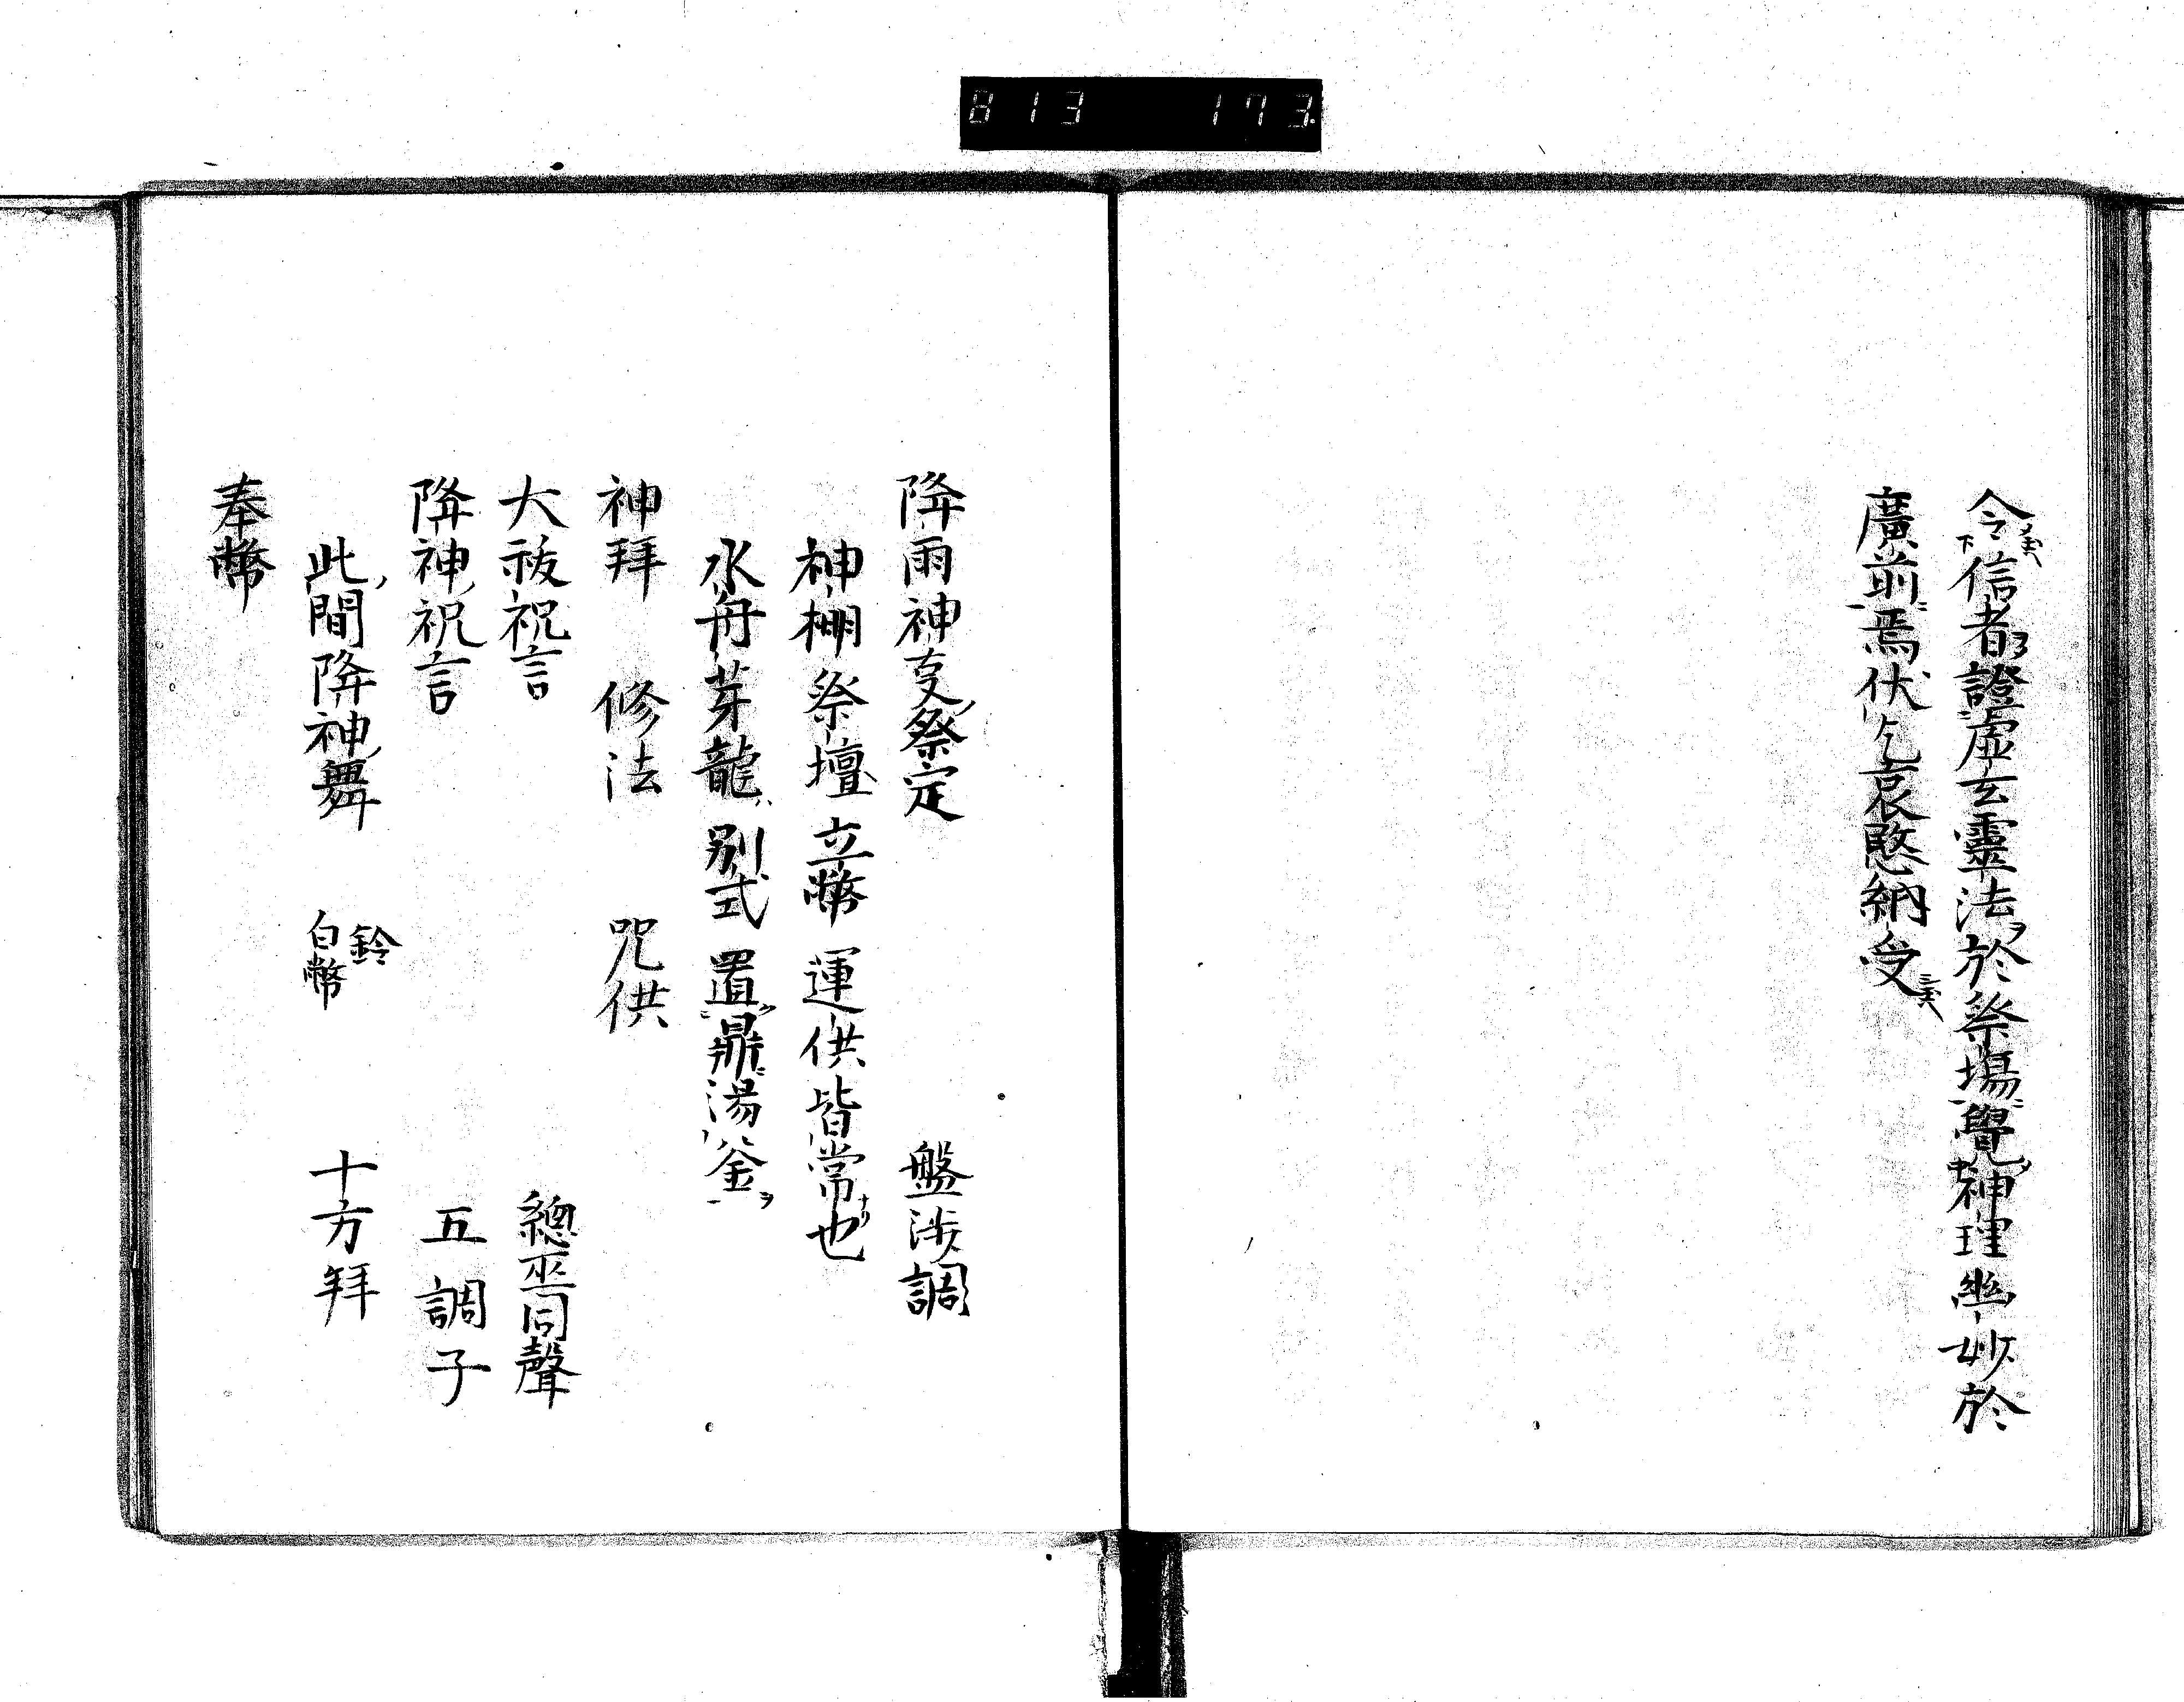 813 173
令信者證虛玄靈法於祭場覺神理幽妙於
廣前焉伏乞哀愍納受
降雨神叓祭定 盤涉調
神棚祭壇立幣運供皆常也
水舟芽龍別式置鼎湯釜
神拜 修法 咒供
大祓祝言 總巫同聲
降神祝言 五調子
此間降神舞 鈴 白幣 十方拜
奉幣